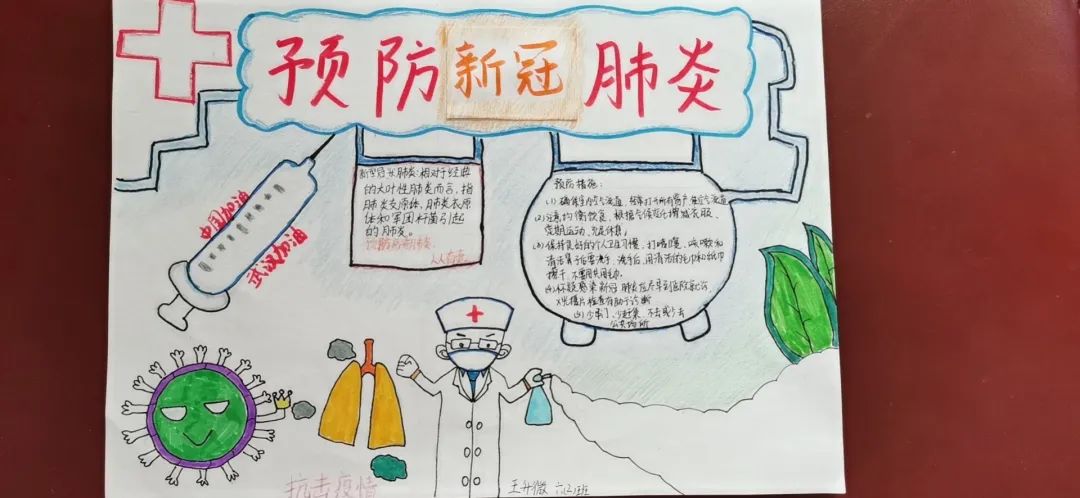 预防新冠肺炎
中国加油
武汉加油
新型冠状肺炎:相对于经典
的大叶性肺炎而言,指
肺炎支原体,肺炎衣原
体和军团杆菌引起
的肺炎。
预防新冠肺炎
人人有责
预防措施:
(1)确保室内空气流通,经常打开所有窗户使空气流通
(2)注意均衡饮食、根据气候变化增减衣服、
定期运动、充足休息;
(3)保持良好的个人卫生习惯,打喷嚏、咳嗽和
清洁鼻子后要洗手,洗手后,用清洁的毛巾和纸巾
擦干,不要用共用毛巾。
(4)怀疑感染新冠肺炎应尽早到医院就诊,
X光擦片检查有助于诊断
(5)少串门、少赶集、不去或少去
公共场所
抗击疫情
王升微 六(2)班